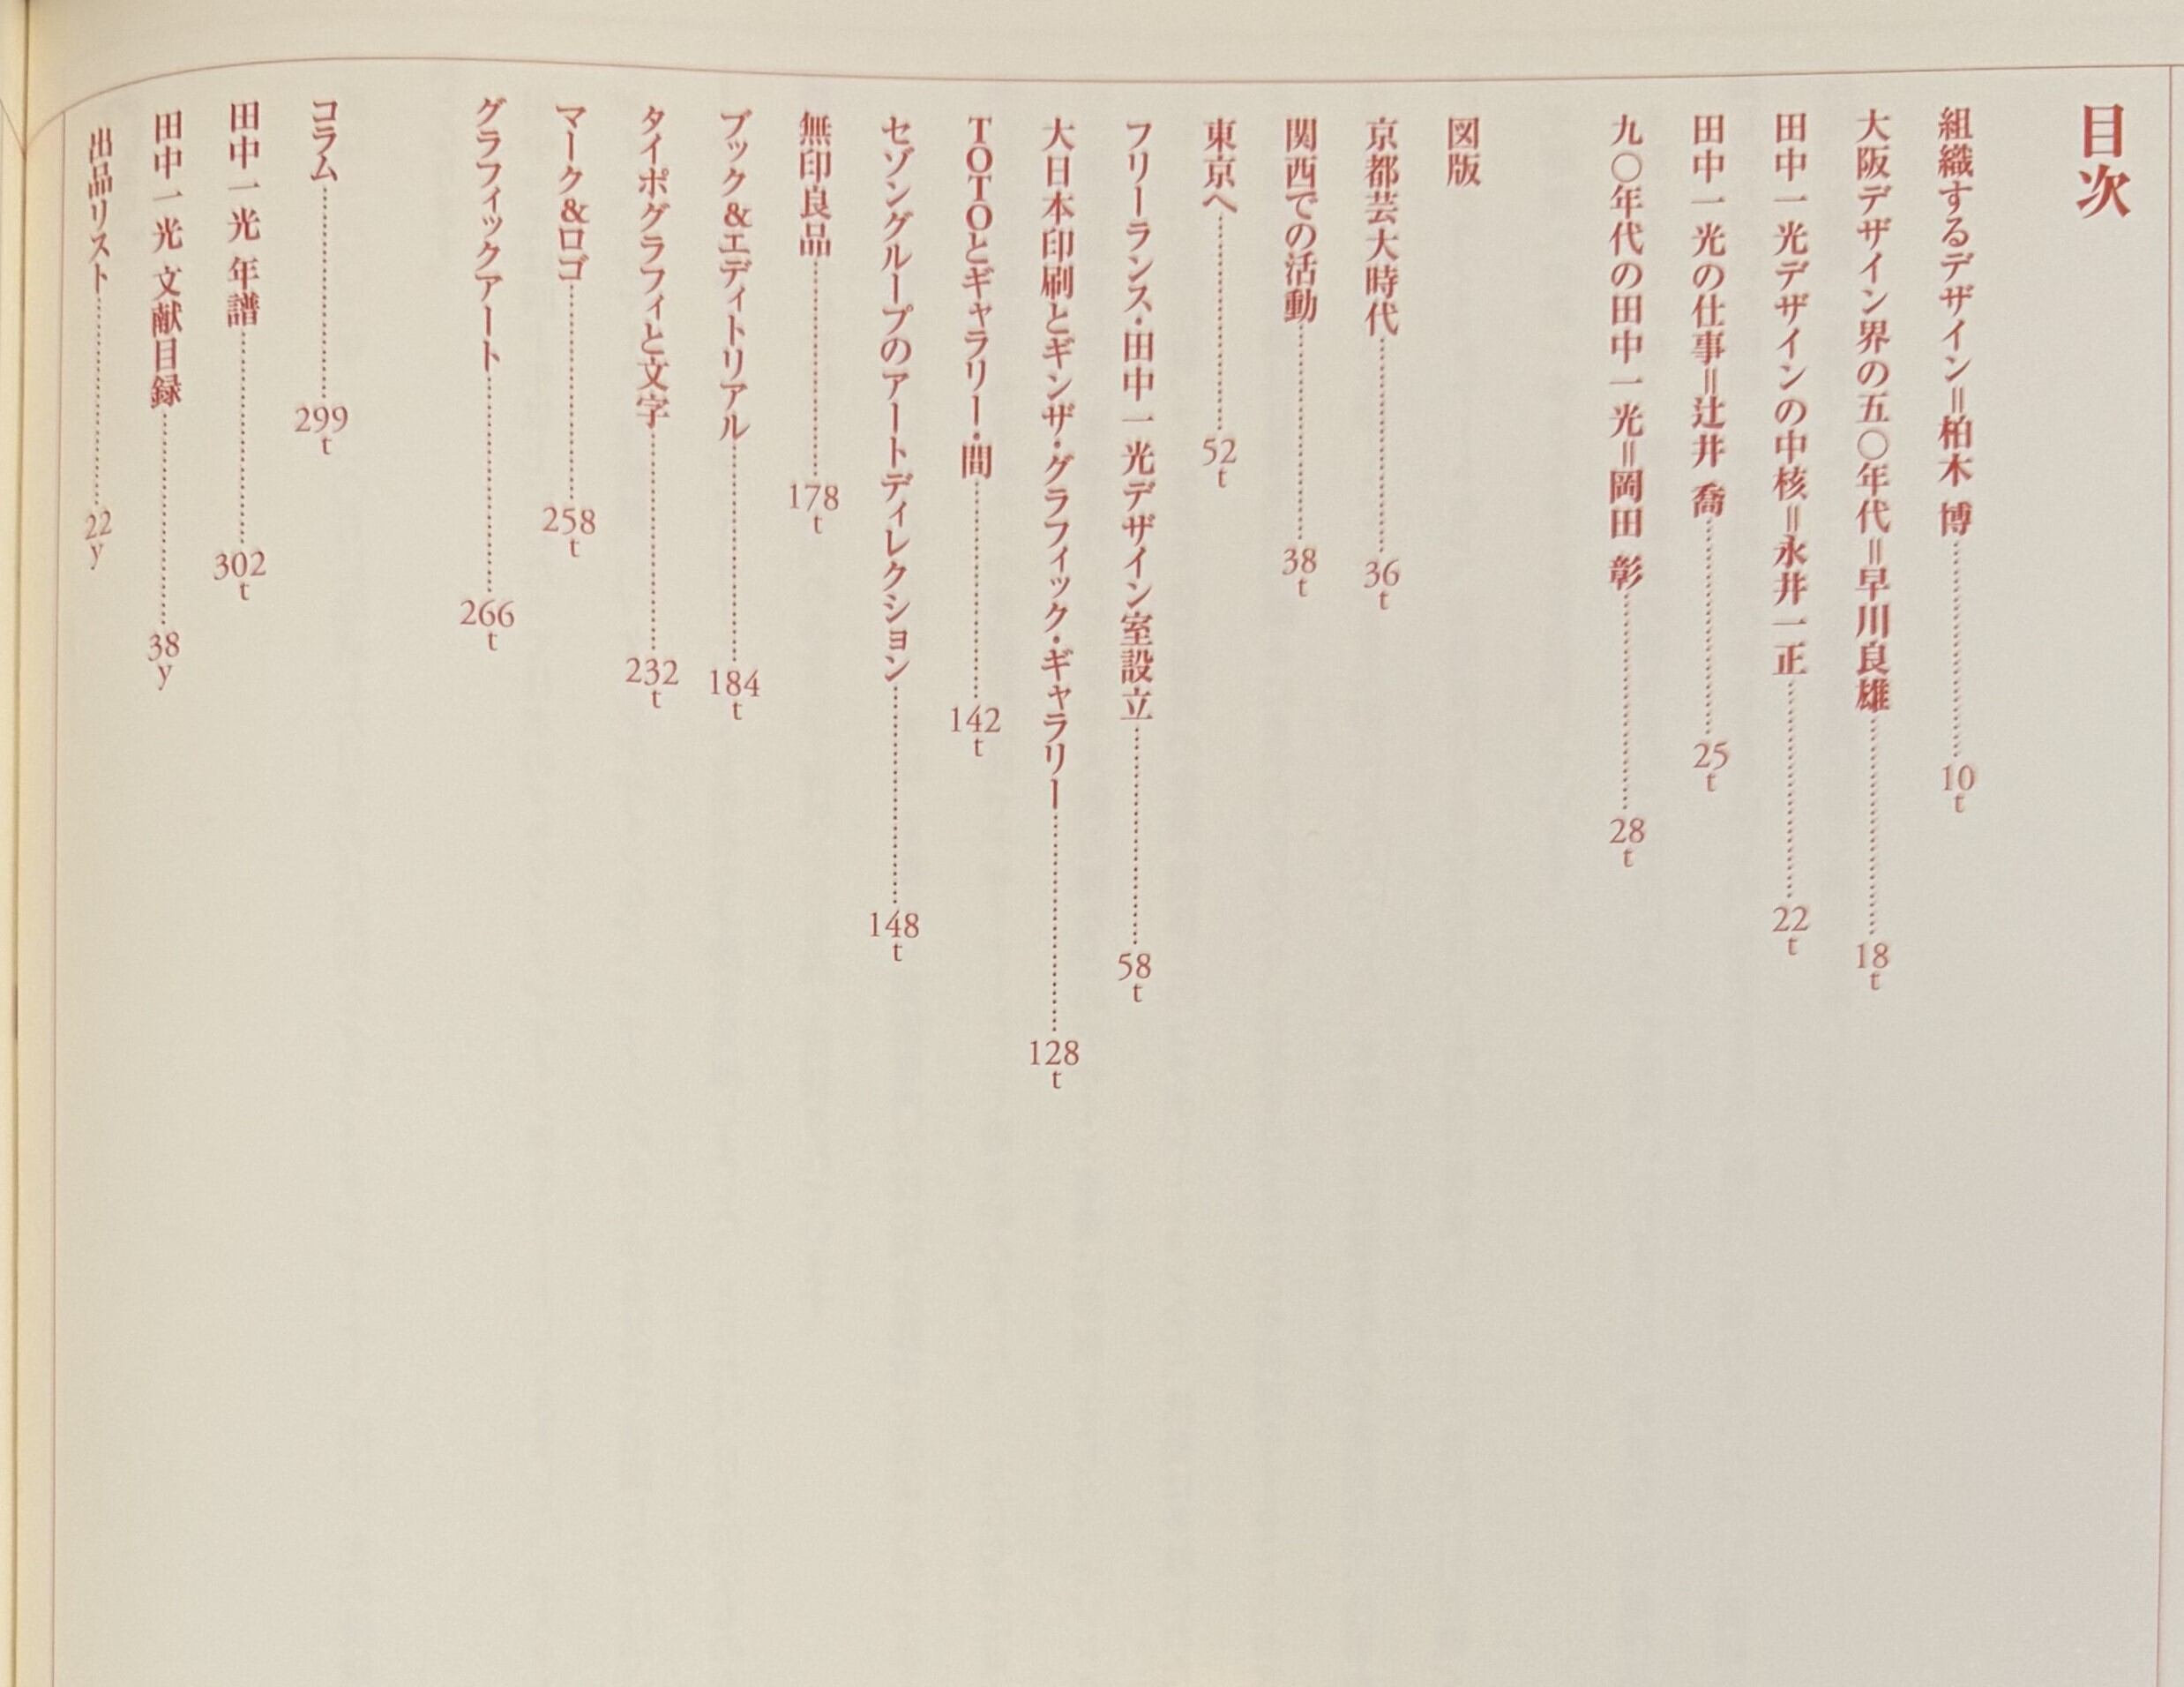 目次
組織するデザイン=柏木 博……10t
大阪デザイン界の五〇年代=早川良雄……18t
田中一光デザインの中核=永井一正……22t
田中一光の仕事=辻井 喬……25t
九〇年代の田中一光=岡田 彰……28t
図版
京都芸大時代……36t
関西での活動……38t
東京へ……52t
フリーランス・田中一光デザイン室設立……58t
大日本印刷とギンザ・グラフィック・ギャラリー……128t
TOTOとギャラリー・間……142t
セゾングループのアートディレクション……148t
無印良品……178t
ブック&エディトリアル……184t
タイポグラフィと文字……232t
マーク&ロゴ……258t
グラフィックアート……266t
コラム……299t
田中一光 年譜……302t
田中一光 文献目録……38y
出品リスト……22y